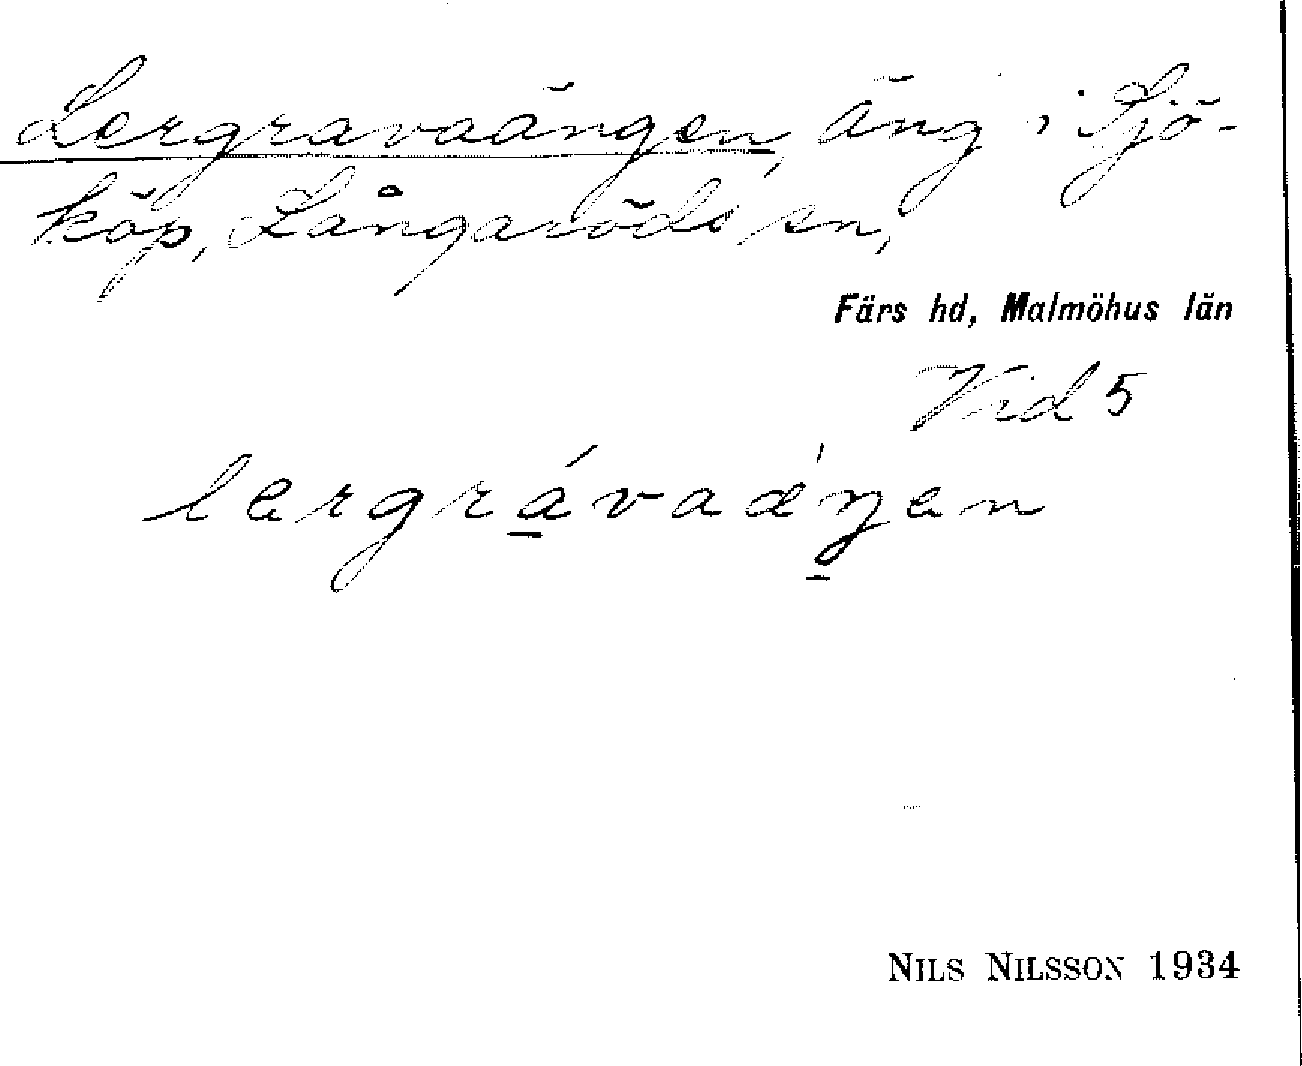 Lergravaängen, äng i Sjö-
köp, Långaröds sn,
Färs hd, Malmöhus län
Vid 5
lergrá̱vaǽ̱ŋen
NILS NILSSON 1934